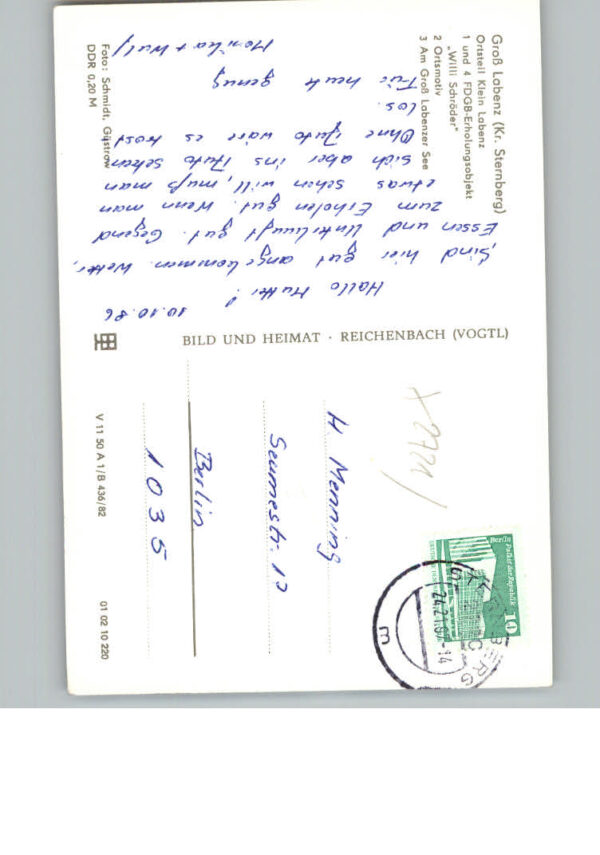 Groß Labenz (Kr. Sternberg)
Ortsteil Klein Labenz
1 und 4 FDGB-Erholungsobjekt
„Willi Schröder"
2 Ortsmotiv
3 Am Groß Labenzer See
10.10.86
Hallo Mutter!
Sind hier gut angekommen. Wetter,
Essen und Unterkunft gut. Gegend
zum Erholen gut. Wenn man
etwas sehen will, muß man
sich aber ins Auto setzen
Ohne Auto wäre es trost
los.
Für heute genug
Monika + Wulf
Foto: Schmidt, Güstrow
DDR 0,20 M
BILD UND HEIMAT · REICHENBACH (VOGTL)
V 11 50 A 1/B 436/82
01 02 10 220
Berlin
Palast der Republik
10
STERNBERG
-14
m
H. Menning
Seumestr. 12
Berlin
1035